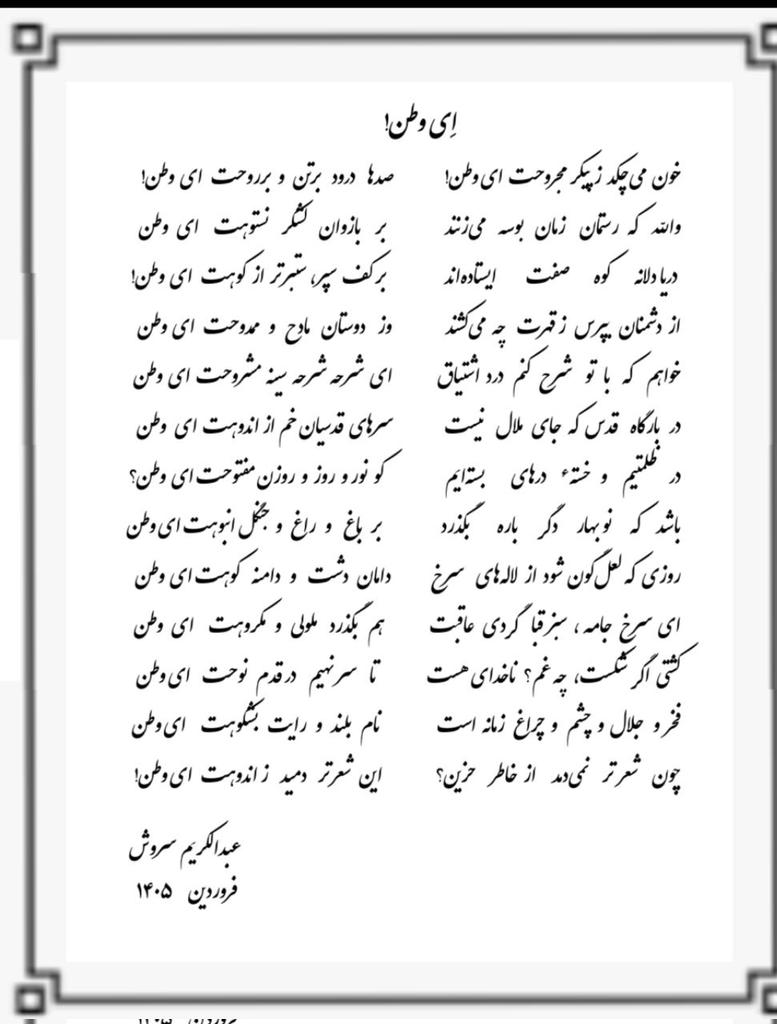 اِی وطن!
خون می‌چکد ز پیکر مجروحت ای وطن! صدها درود برتن و برروحت ای وطن!
والله که رستمان زمان بوسه می‌زنند بر بازوان لشگر نستوهت ای وطن
دریادلانه کوه صفت ایستاده‌اند برکف سپر، ستبرتر از کوهت ای وطن!
از دشمنان بپرس ز قهرت چه می‌کشند وز دوستان مادح و ممدوحت ای وطن
خواهم که با تو شرح کنم درد اشتیاق ای شرحه شرحه سینه مشروحت ای وطن
در بارگاه قدس که جای ملال نیست سرهای قدسیان خم از اندوهت ای وطن
در ظلمتیم و خستهٔ درهای بسته‌ایم کو نور و روز و روزن مفتوحت ای وطن؟
باشد که نوبهار دگر باره بگذرد بر باغ و راغ و جنگل انبوهت ای وطن
روزی که لعل گون شود از لاله‌های سرخ دامان دشت و دامنه کوهت ای وطن
ای سرخ جامه، سبزقبا گردی عاقبت هم بگذرد ملولی و مکروهت ای وطن
کشتی اگر شکست، چه غم؟ ناخدای هست تا سرنهیم درقدم نوحت ای وطن
فخر و جلال و چشم و چراغ زمانه است نام بلند و رایت بشکوهت ای وطن
چون شعر تر نمی‌دمد از خاطر حزین؟ این شعرتر دمید ز اندوهت ای وطن!
عبدالکریم سروش
فروردین ۱۴۰۵